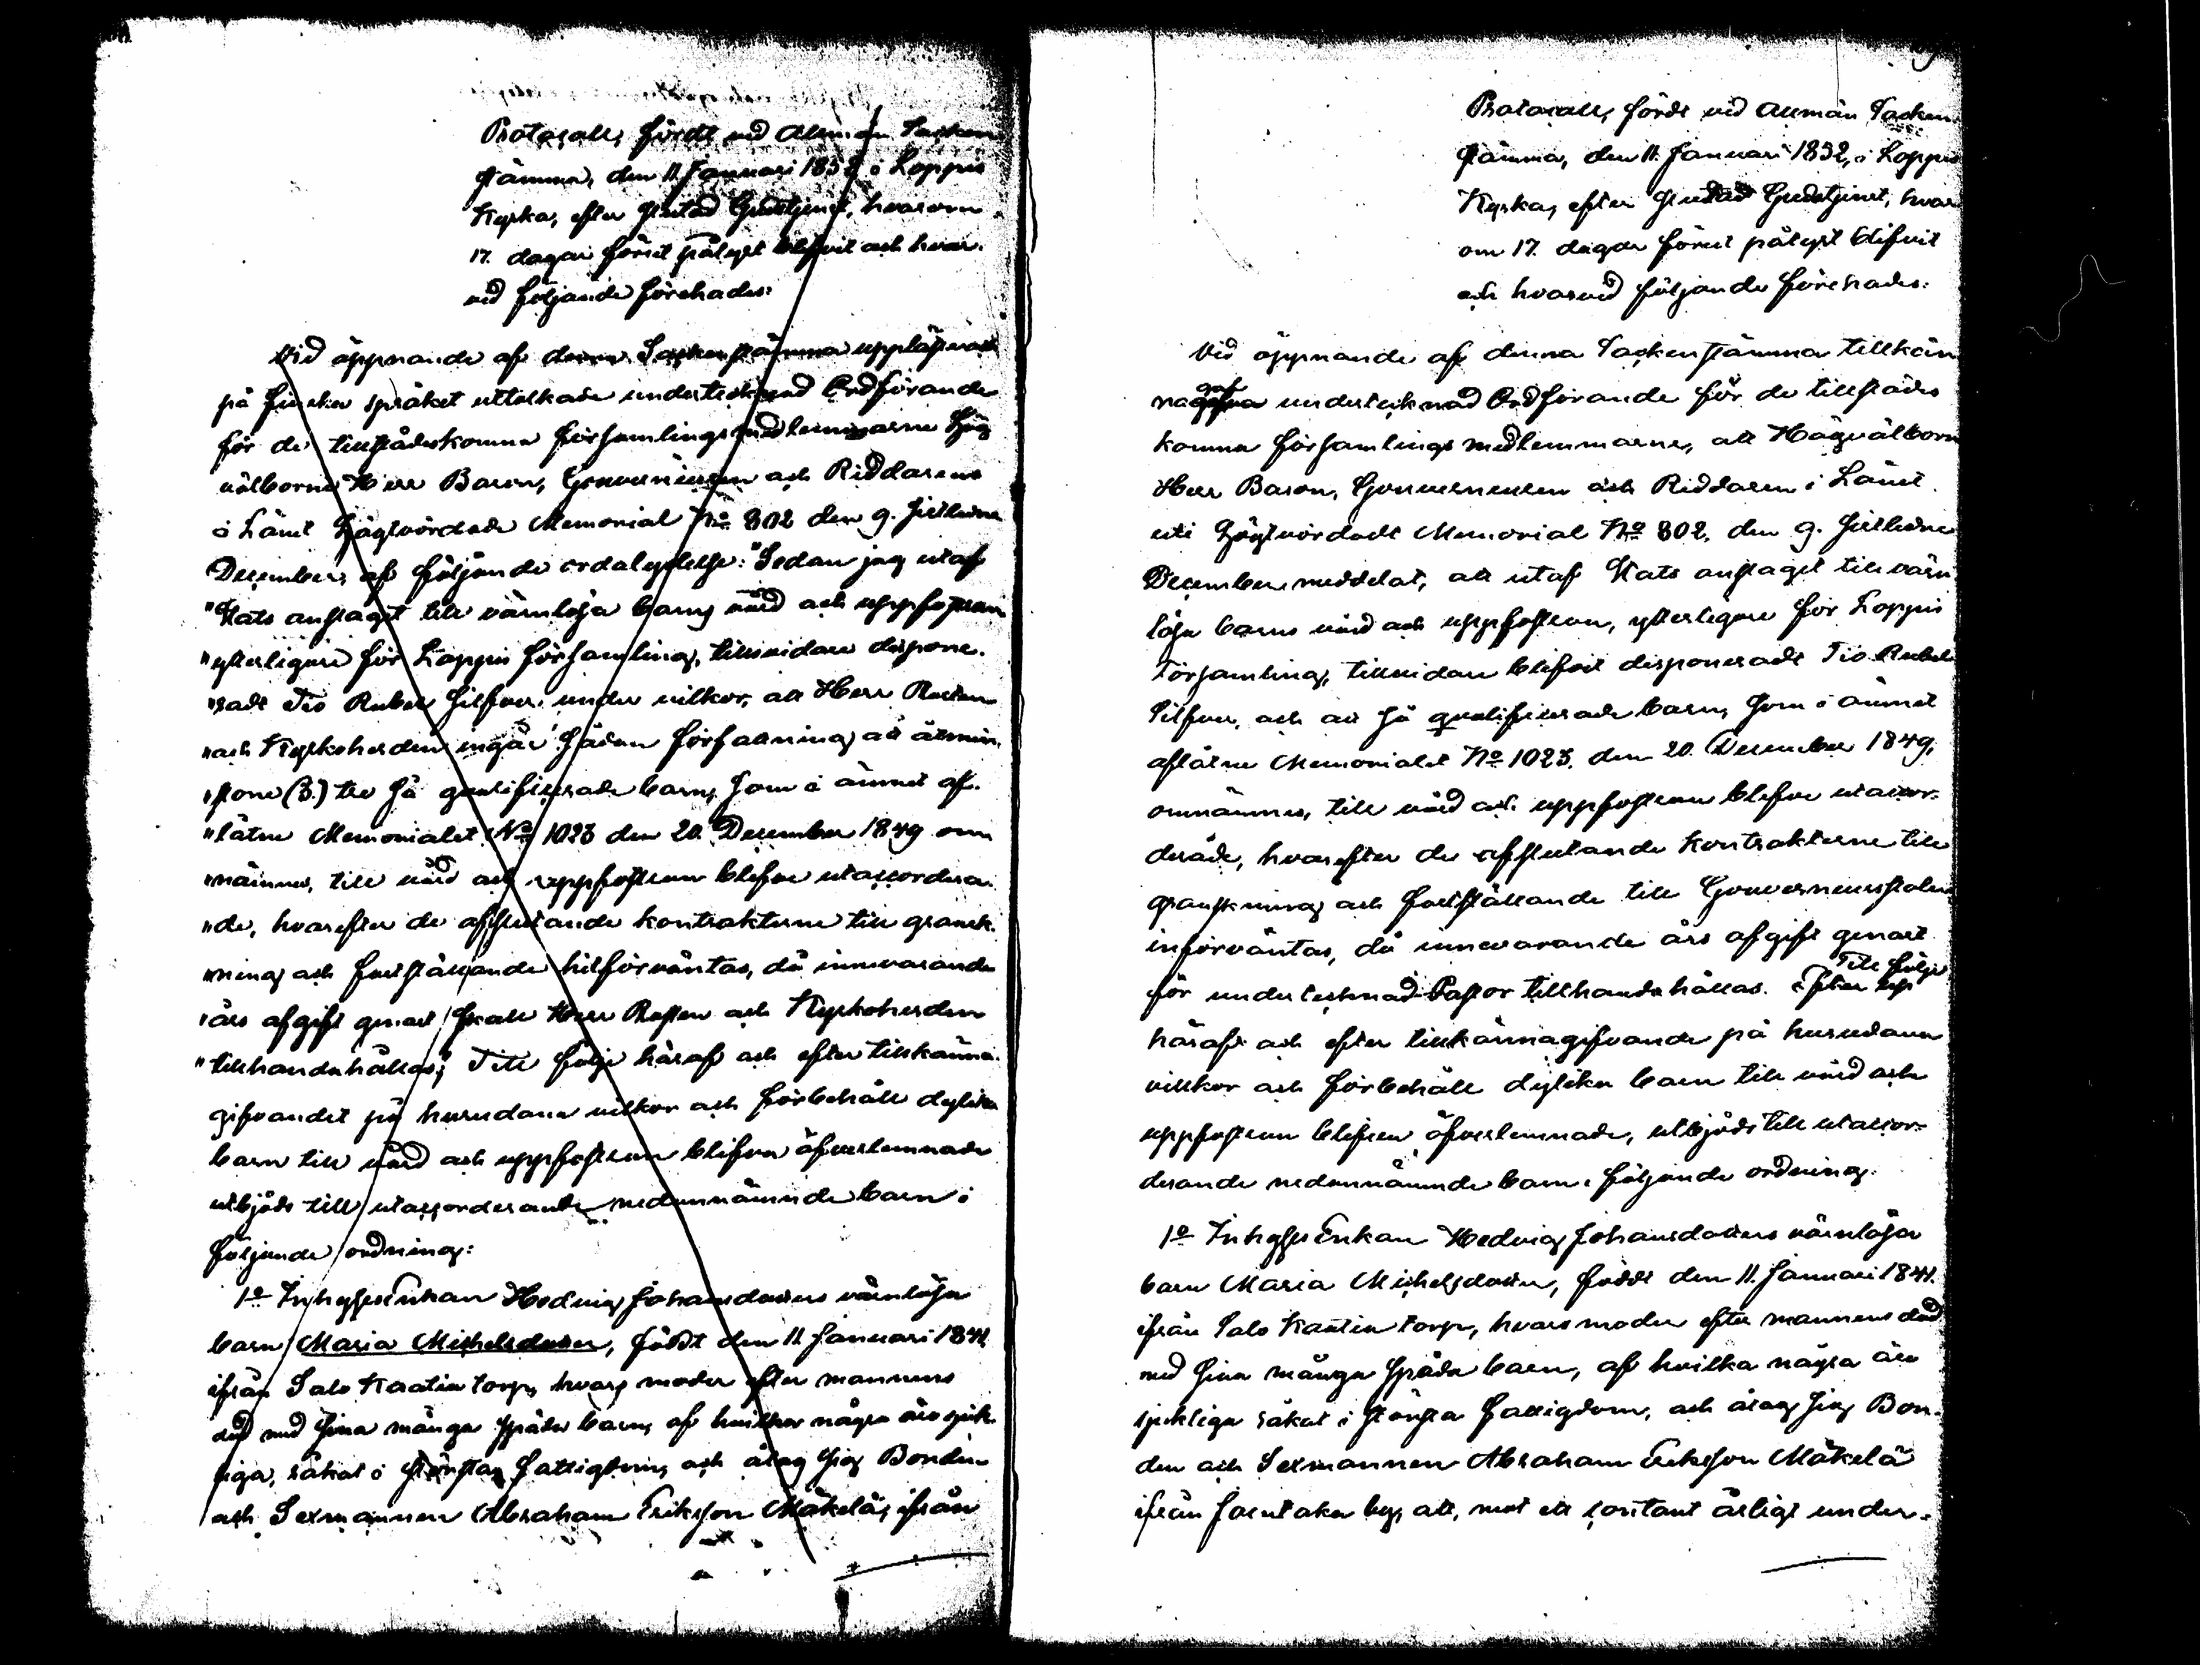 Protocoll, fördt vid Allmän Socken
stämma, den 11 Januari 1852, i Loppis
Kyrka, efter slutad Gudstjenst, hvarom
17. dagar förut pålyst blifvit och hvar-
vid följande förehades:
Vid öppnande af denna Sockenstämma uppläste och
på finska språket uttolkade undertecknad Ordförande
för de tillstädeskomna församlingsmedlemmarne Hög
välborne Herr Baron, Gouverneuren och Riddarens
i Länet Högtvördade Memorial No 802 den 9. sistledne
December, af följande ordalydelse: "Sedan jag utaf
"Stats anslaget till värnlösa barns vård och uppfostran
"ytterligare för Loppis församling, tillsvidare dispone-
"radt Tio Rubel Silfver, under vilkor, att Herr Pastorn
"och Kyrkoherden ingår i sådan författning att åtmin-
"stone (3.) tre så qualificerade barn, som i ämnet af-
"låtne Memorialet No 1023 den 20. December 1849 om
"nämnes, till vård och uppfostran blefve utaccordera-
"de, hvarefter de afslutande kontrakterne till gransk-
"ning och fastställande hitförväntas, då innevarande
"års afgift genast skall Herr Pastorn och Kyrkoherden
"tillhandahållas;" Till följe häraf och efter tillkänna-
gifvandet på hurudana vilkor och förbehåll dylika
barn till vård och uppfostran blifva öfverlemnade
utbjöds till utaccorderande nedannämnde barn i
följande ordning:
1o Inhyses Enkan Hedvig Johansdotters värnlösa
barn Maria Michelsdotter, födt den 11 Januari 1841
ifrån Salo Kaatia torp, hvars moder efter mannens
död med sina många späda barn, af hvilka några äro sjuk-
liga, råkat i största fattigdom, och åtog sig Bonden
och Sexmannen Abraham Eriksson Mäkelä, ifrån
Protocoll, fördt vid Allmän Socken
stämma, den 11. Januari 1852, i Loppis
Kyrka, efter slutad Gudstjenst, hvar
om 17. dagar förut pålyst blifvit
och hvarvid följande förehades:
Vid öppnande af denna Sockenstämma tillkän
nagaf undertecknad Ordförande för de tillstädes
komna församlings medlemmarne, att Högvälborne
Herr Baron, Gouverneuren och Riddaren i Länet
uti Högtvördadt Memorial No 802, den 9. sistledne
December meddelat, att utaf Stats anslaget till värn
lösa barns vård och uppfostran, ytterligare för Loppis
Församling, tillsvidare blifvit disponeradt Tio Rubel
Silfver, och att så qualificerade barn, som i ämnet
aflåtne Memorialet No 1023. den 20. December 1849,
omnämnes, till vård och uppfostran blefve utaccor-
derade, hvarefter de afslutande Kontrakterne till
granskning och fastställande till Gouverneursstolen
införväntas, då innevarande års afgift genast
för undertecknad Pastor tillhandahållas. Till följe
häraf och efter tillkännagifvande på hurudana
villkor och förbehåll dylika barn till vård och
uppfostran blifven öfverlemnade, utbjöds till utaccor-
derande nedannämnde barn i följande ordning.
1o Inhyses Enkan Hedvig Johansdotters värnlösa
barn Maria Michelsdotter, född den 11. Januari 1841.
ifrån Salo Kaatia torp, hvars moder efter mannens död
med sina många späda barn, af hvilka några äro
sjukliga råkat i största fattigdom, och åtog sig Bon-
den och Sexmannen Abraham Eriksson Mäkelä
ifrån Joentaka by, att, mot ett contant årligt under-